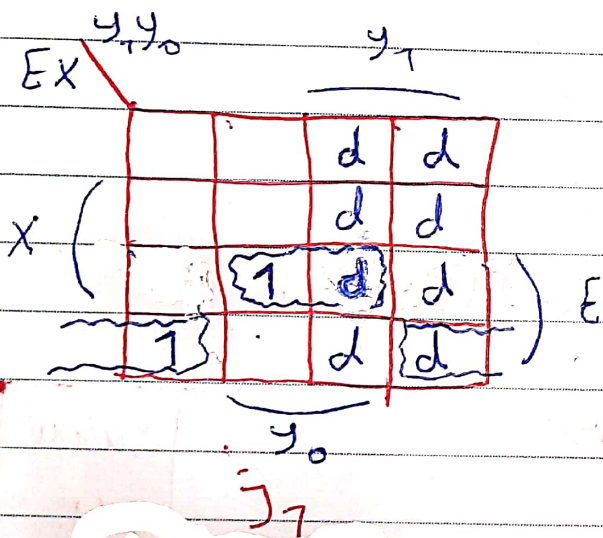 y₁y₀
y₁
EX
d d
X d d
1 d d E
1 d d
y₀
J₁